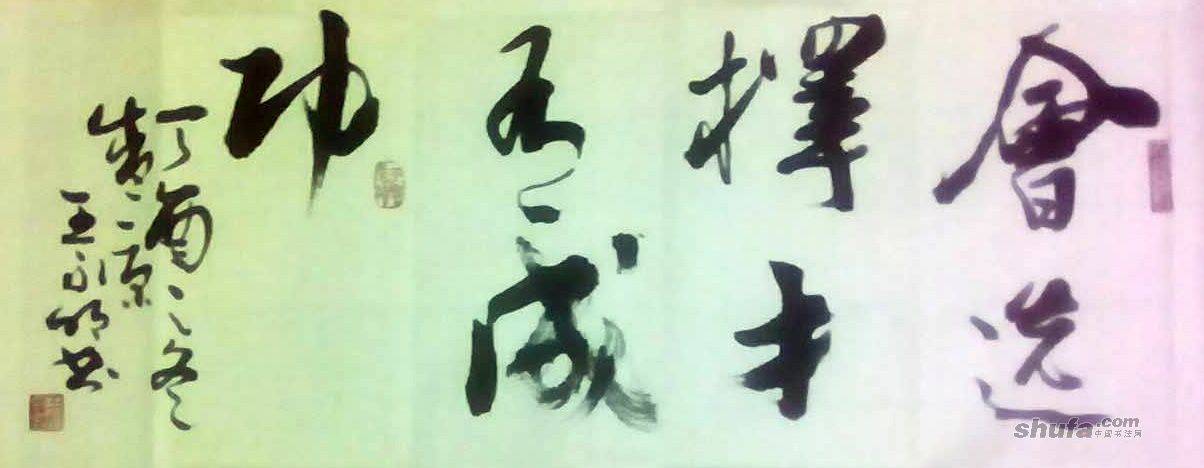 會选
擇才
有成
功
丁酉之冬
王永明书
shufa.com
中国书法网